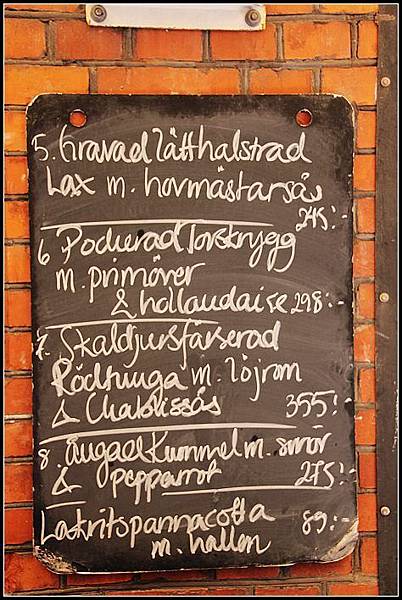 5. Gravad lätthalstrad
Lax m. hovmästarsås
245:-
6 Pocherad Torskrygg
m. primörer
& hollandaise 298:-
7. Skaldjursfärserad
Rödtunga m. löjrom
& Chablissås 355:-
8 Ångad Kummel m. smör
& pepparrot 275:-
Lakritspannacotta 89:-
m. hallon